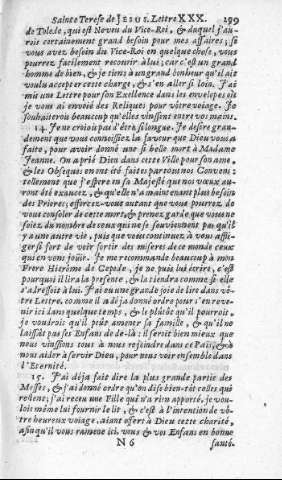 Sainte Terese de JESUS. Lettre XXX. 299
de Tolede, qui est Neveu du Vice-Roi, & duquel j'au-
rois certainement grand besoin pour mes affaires; si
vous avez besoin du Vice-Roi en quelque chose, vous
pourrez facilement recourir à lui; car c'est un grand
homme de bien, & je tiens à un grand bonheur qu'il ait
voulu accepter cette charge, & s'en aller si loin. J'ai
mis une Lettre pour son Excellence dans les envelopes où
je vous ai envoié des Reliques pour vôtre voiage. Je
souhaiterois beaucoup qu'elles vinssent entre vos mains.
14. Je ne croiois pas d'être si longue. Je desire gran-
dement que vous connoissiez la faveur que Dieu vous a
faite, pour avoir donné une si belle mort à Madame
Jeanne. On a prié Dieu dans cette Ville pour son ame,
& les Obseques en ont été faites par tous nos Convens:
tellement que j'espere en sa Majesté que nos vœux au-
ront été exaucez, & qu'elle n'a maintenant plus besoin
des Prieres; efforcez-vous autant que vous pourrez de
vous consoler de cette mort & prenez garde que vous ne
soiez du nombre de ceux qui ne se souviennent pas qu'il
y a une autre vie, puis que vous continuez à vous affli-
ger si fort de voir sortir des miseres de ce monde ceux
qui en vont joüir. Je me recommande beaucoup à mon
Frere Hierôme de Cepede, je ne puis lui écrire, c'est
pourquoi il lira la presente, & la tiendra comme si elle
s'adressoit à lui. J'ai eu une grande joie de lire dans vô-
tre Lettre, comme il a déja donné ordre pour s'en reve-
nir ici dans quelque temps, & le plûtôt qu'il pourroit,
je voudrois qu'il pût amener sa famille, & qu'il ne
laissât pas ses Enfans de-là: il seroit bien mieux que
nous vinssions tous à nous rejoindre dans ce Païs, & à
nous aider à servir Dieu, pour nous voir ensemble dans
l'Eternité.
15. J'ai déja fait dire la plus grande partie des
Messes, & j'ai donné ordre qu'on dise bien-tôt celles qui
restent; j'ai receu une Fille qui n'a rien apporté, je vou-
lois même lui fournir le lit, & c'est à l'intention de vô-
tre heureux voiage, aiant offert à Dieu cette charité,
afin qu'il vous ramene ici, vous & vos Enfans en bonne
N 6 santé.